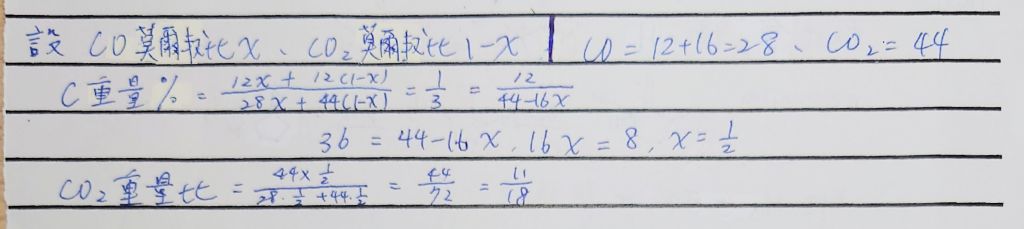 設 CO莫爾數比 x、CO₂莫爾數比 1-x | CO=12+16=28、CO₂=44
C重量% = \frac{12x+12(1-x)}{28x+44(1-x)} = \frac{1}{3} = \frac{12}{44-16x}
36 = 44-16x, 16x = 8, x = \frac{1}{2}
CO₂重量比 = \frac{44×\frac{1}{2}}{28·\frac{1}{2}+44·\frac{1}{2}} = \frac{44}{72} = \frac{11}{18}